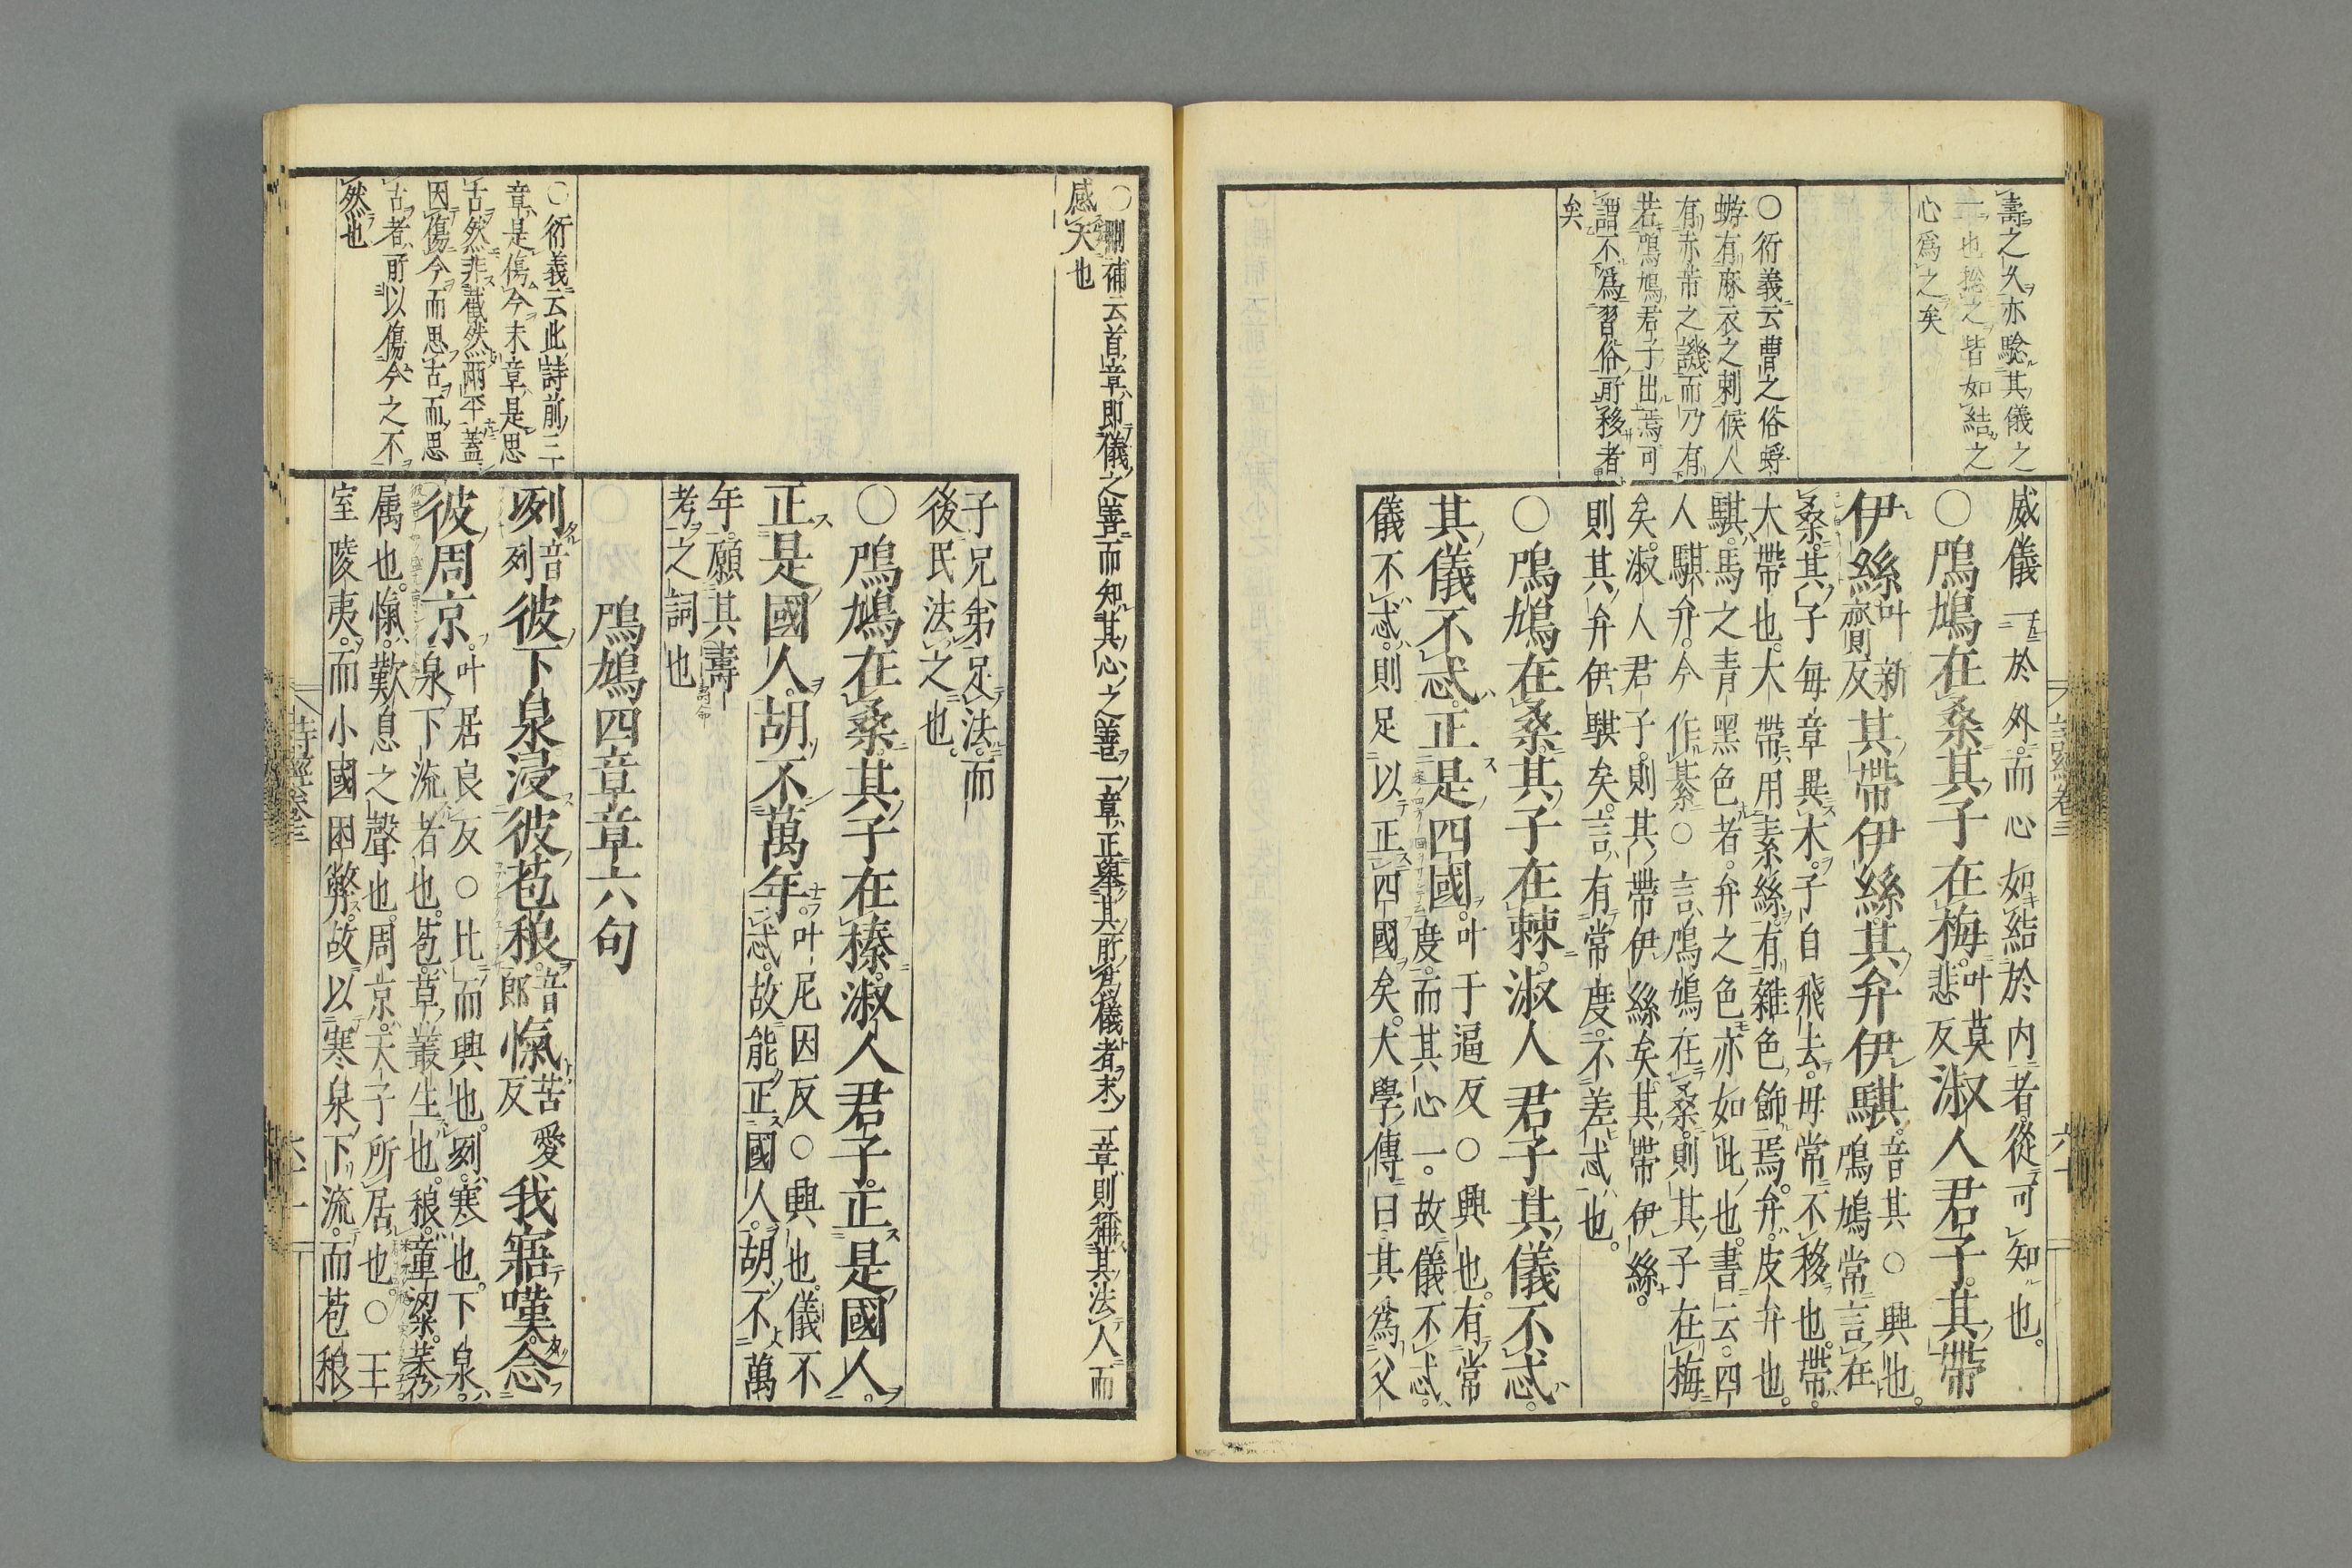 壽之久亦驗其儀之
一也總之皆如結之
心爲之矣
○衍義云曹之俗蜉
蝣有麻衣之刺候人
有赤芾之譏而乃有
若鳲鳩君子出焉可
謂不爲習俗所移者
矣
威儀一於外而心如結於内者從可知也
○鳲鳩在桑其子在梅叶莫悲反淑人君子其帶
伊絲叶新齎反其帶伊絲其弁伊騏音其○興也
鳲鳩常言在
桑其子毎章異木子自飛去母常不移也帶
大帶也大帶用素絲有雜色飾焉弁皮弁也
騏馬之青黑色者弁之色亦如此也書云四
人騏弁今作綦○言鳲鳩在桑則其子在梅
矣淑人君子則其帶伊絲矣其帶伊絲
則其弁伊騏矣言有常度不差忒也
○鳲鳩在桑其子在棘淑人君子其儀不忒
其儀不忒正是四國叶于逼反○興也有常
度而其心一故儀不忒
儀不忒則足以正四國矣大學傳曰其爲父
詩經卷三
六十
○刪補云首章即儀之善而知其心之善二章正擧其所爲儀者末二章則稱其法人而
感天也
○衍義云此詩前三
章是傷今末章是思
古然非截然兩平蓋
因傷今而思古而思
古者所以傷今之不
然也
子兄弟足法而
後民法之也
○鳲鳩在桑其子在榛淑人君子正是國人
正是國人胡不萬年叶尼因反○興也儀不
忒故能正國人胡不萬
年願其壽
考之詞也
鳲鳩四章章六句
冽音列彼下泉浸彼苞稂音郎愾苦愛反我寤嘆念
彼周京叶居良反○比而興也冽寒也下泉
泉下流者也苞草叢生也稂童粱莠
属也愾歎息之聲也周京天子所居也○王
室陵夷而小國困弊故以寒泉下流而苞稂
詩經卷三
六十一